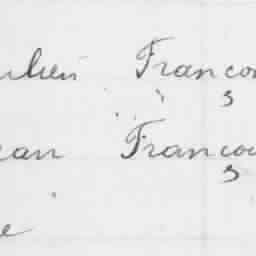 ulien Franco
s
ean Francoi
s
e